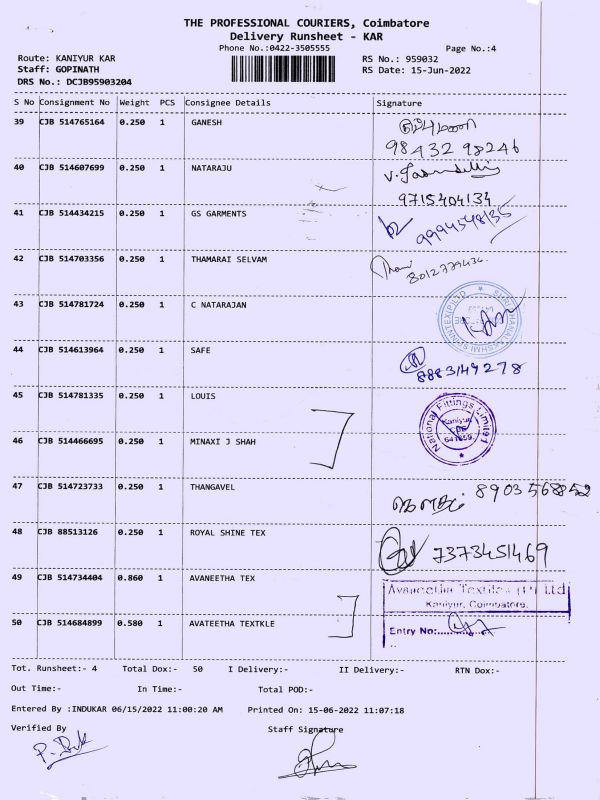 THE PROFESSIONAL COURIERS, Coimbatore
Delivery Runsheet - KAR
Phone No.:0422-3505555
Page No.:4
Route: KANIYUR KAR
RS No.: 959032
Staff: GOPINATH
RS Date: 15-Jun-2022
DRS No.: DCJB95903204
S No Consignment No Weight PCS Consignee Details Signature
39 CJB 514765164 0.250 1 GANESH
98432 98246
40 CJB 514607699 0.250 1 NATARAJU
9715404134
41 CJB 514434215 0.250 1 GS GARMENTS
9994548135
42 CJB 514703356 0.250 1 THAMARAI SELVAM
43 CJB 514781724 0.250 1 C NATARAJAN
44 CJB 514613964 0.250 1 SAFE
8883149278
45 CJB 514781335 0.250 1 LOUIS
National Fittings Limited
Kaniyur
641659
46 CJB 514466695 0.250 1 MINAXI J SHAH
47 CJB 514723733 0.250 1 THANGAVEL
8903568852
48 CJB 88513126 0.250 1 ROYAL SHINE TEX
7373451469
49 CJB 514734404 0.860 1 AVANEETHA TEX
Avaneetha Textiles (P) Ltd
Kaniyur, Coimbatore.
50 CJB 514684899 0.580 1 AVATEETHA TEXTKLE
Entry No:
Tot. Runsheet:- 4 Total Dox:- 50 I Delivery:- II Delivery:- RTN Dox:-
Out Time:- In Time:- Total POD:-
Entered By :INDUKAR 06/15/2022 11:00:20 AM Printed On: 15-06-2022 11:07:18
Verified By Staff Signature